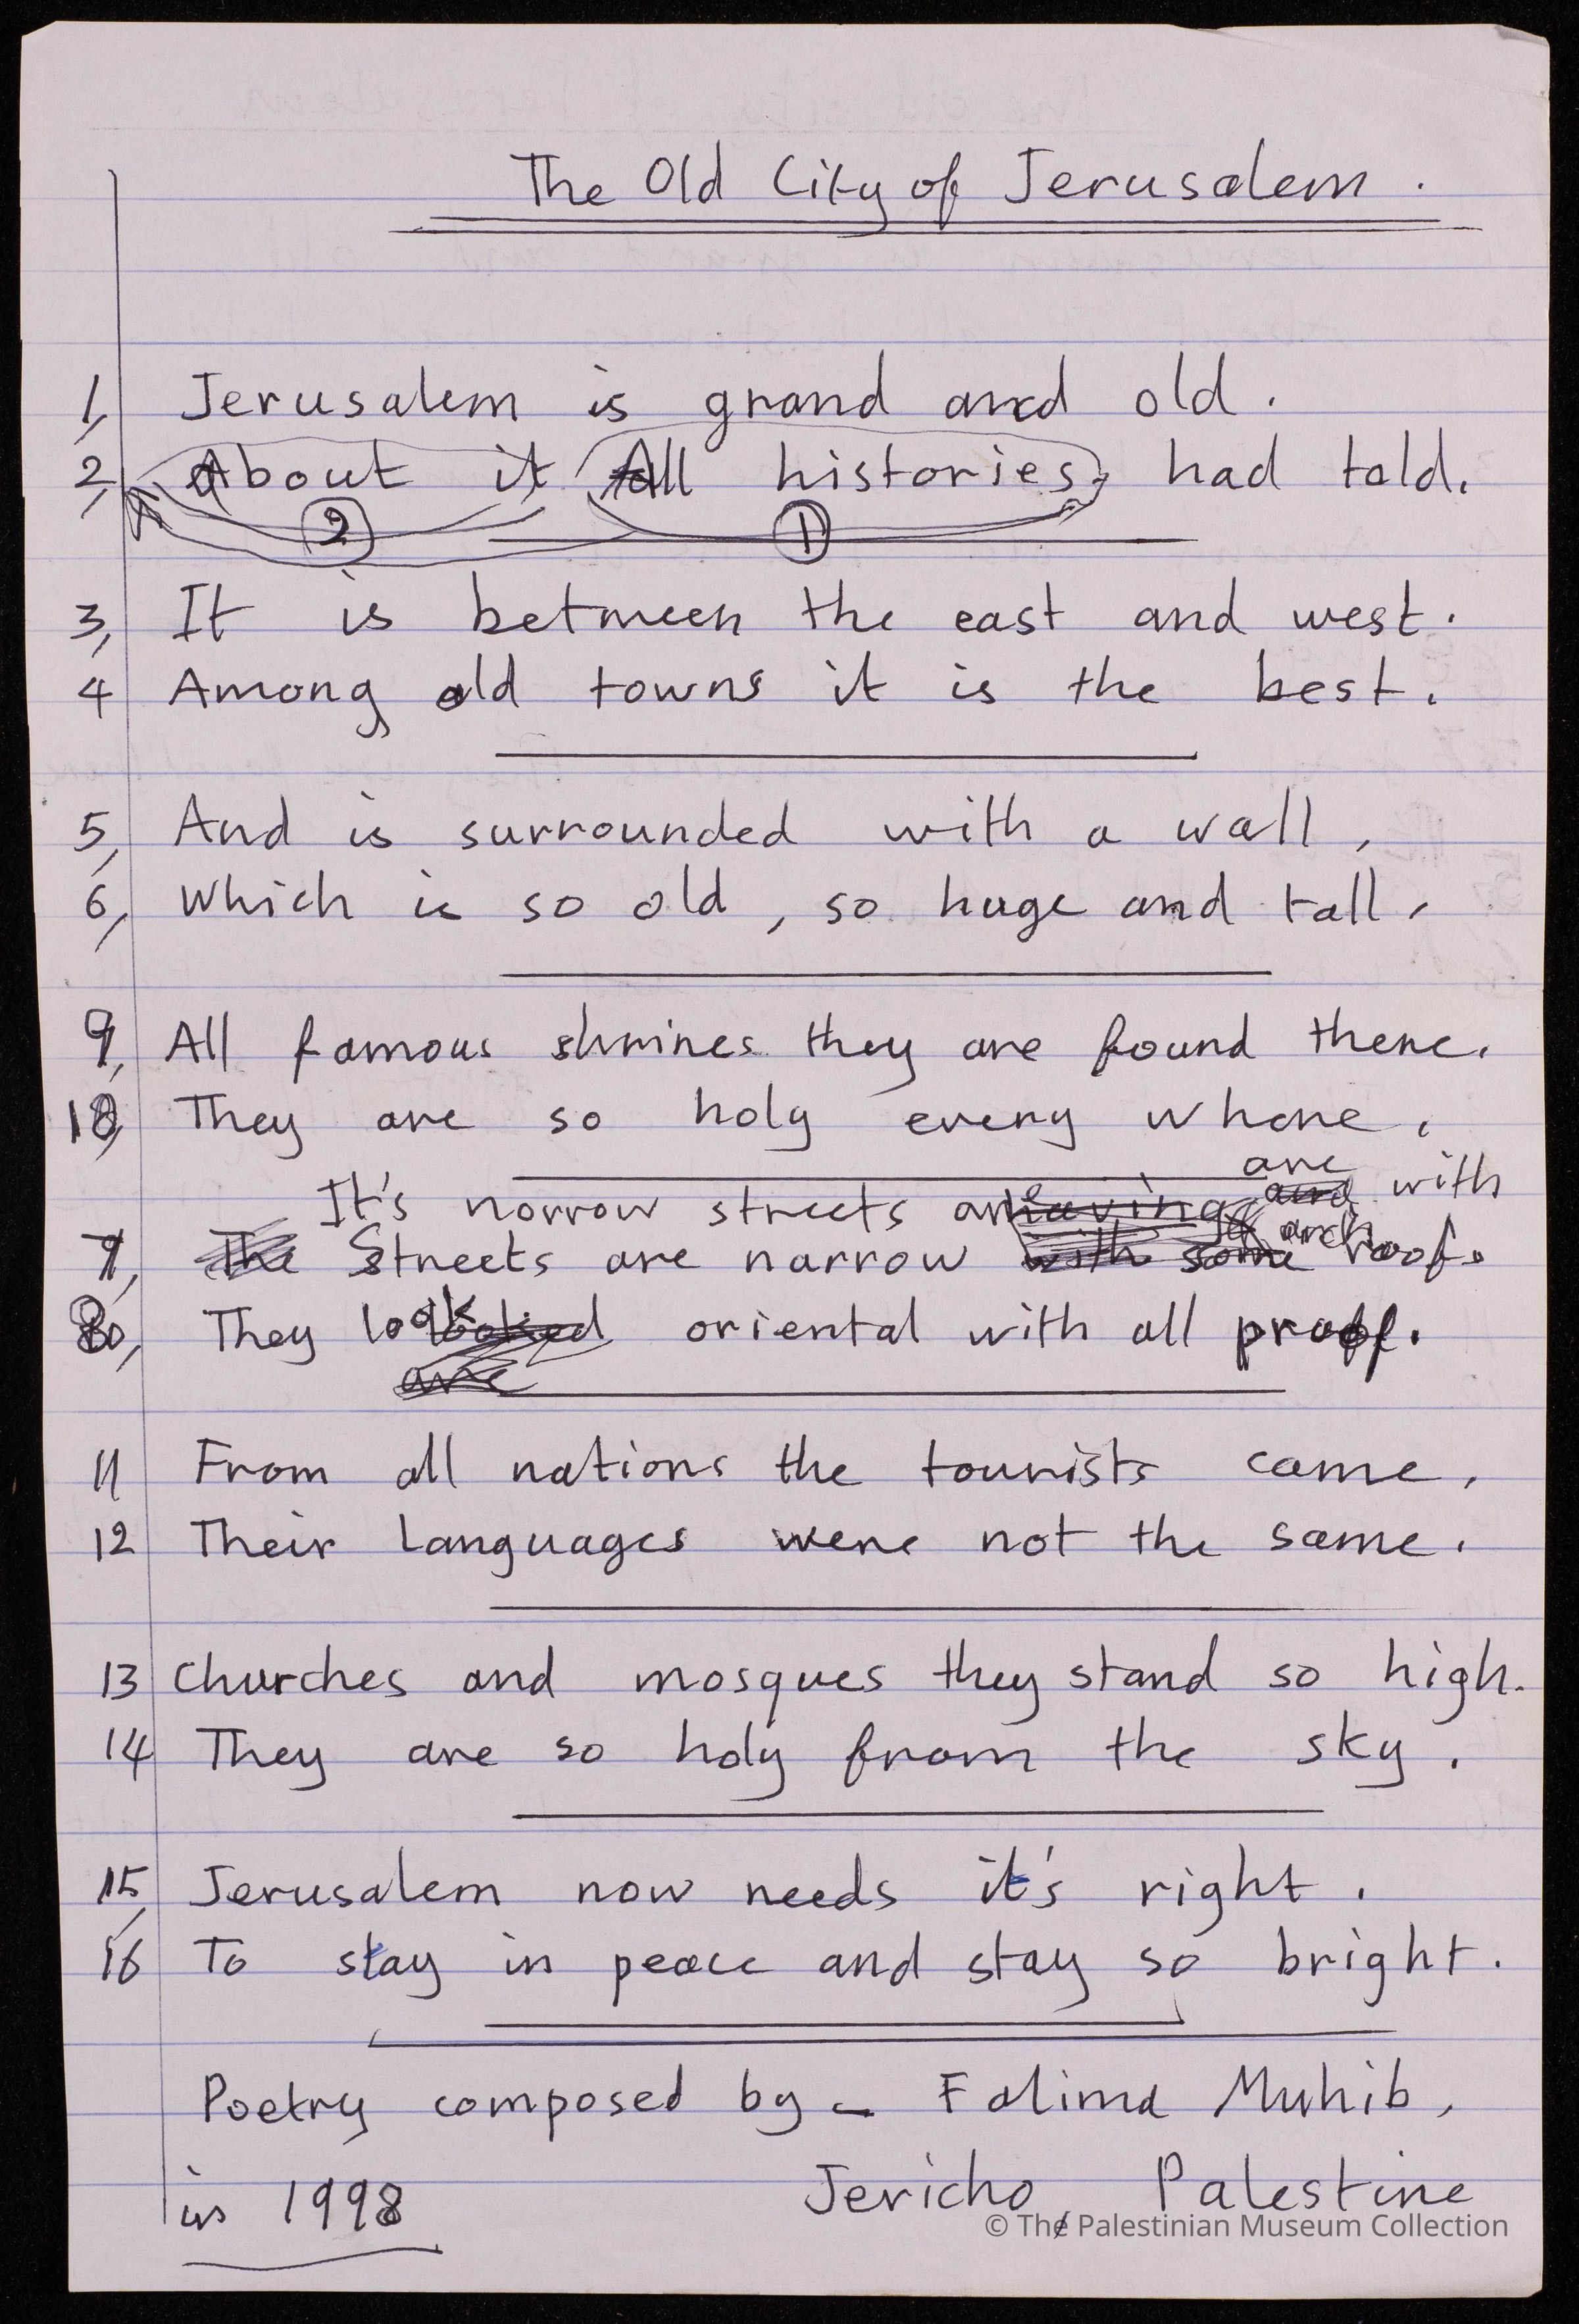 The Old City of Jerusalem.
1, Jerusalem is grand and old.
2, About it All histories, had told.
2 1
3, It is between the east and west.
4 Among old towns it is the best.
5, And is surrounded with a wall,
6, Which is so old, so huge and tall,
9, All famous shrines they are found there.
10, They are so holy every where,
are
It's norrow streets having and with
arch
7, The Streets are narrow with some roof.
8, They look looked oriental with all proof.
are
11 From all nations the tourists came,
12 Their languages were not the same.
13 Churches and mosques they stand so high.
14 They are so holy from the sky.
15, Jerusalem now needs it's right.
16 To stay in peace and stay so bright.
Poetry composed by - Fatima Muhib,
in 1998 Jericho, Palestine
© The Palestinian Museum Collection